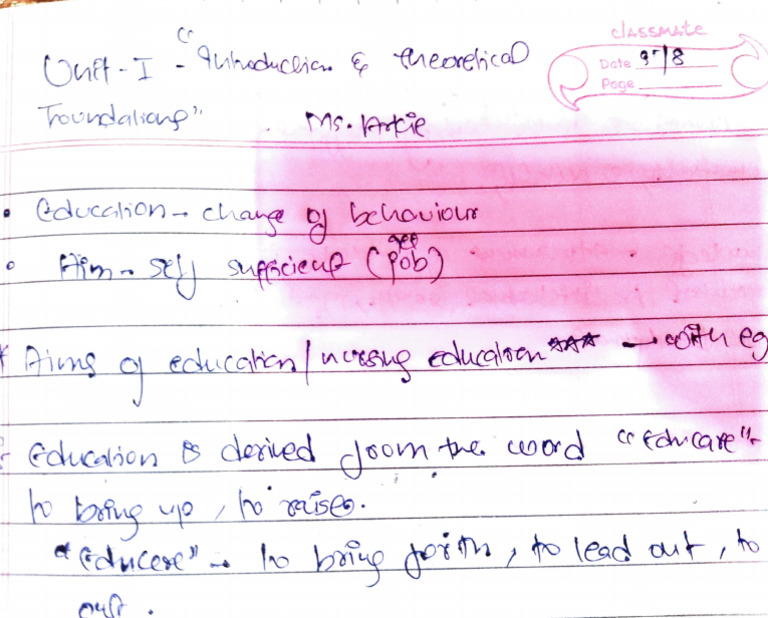 classmate
Date 9/8
Page
Unit-I - "Introduction & theoretical
Foundations"
Ms. Arkie
• Education → change of behaviour
• Aim → self sufficient (get job)
* Aims of education/nursing education *** → with eg
Education is derived from the word "Educare" →
to bring up, to raise.
"Educere" → to bring forth, to lead out, to
out.